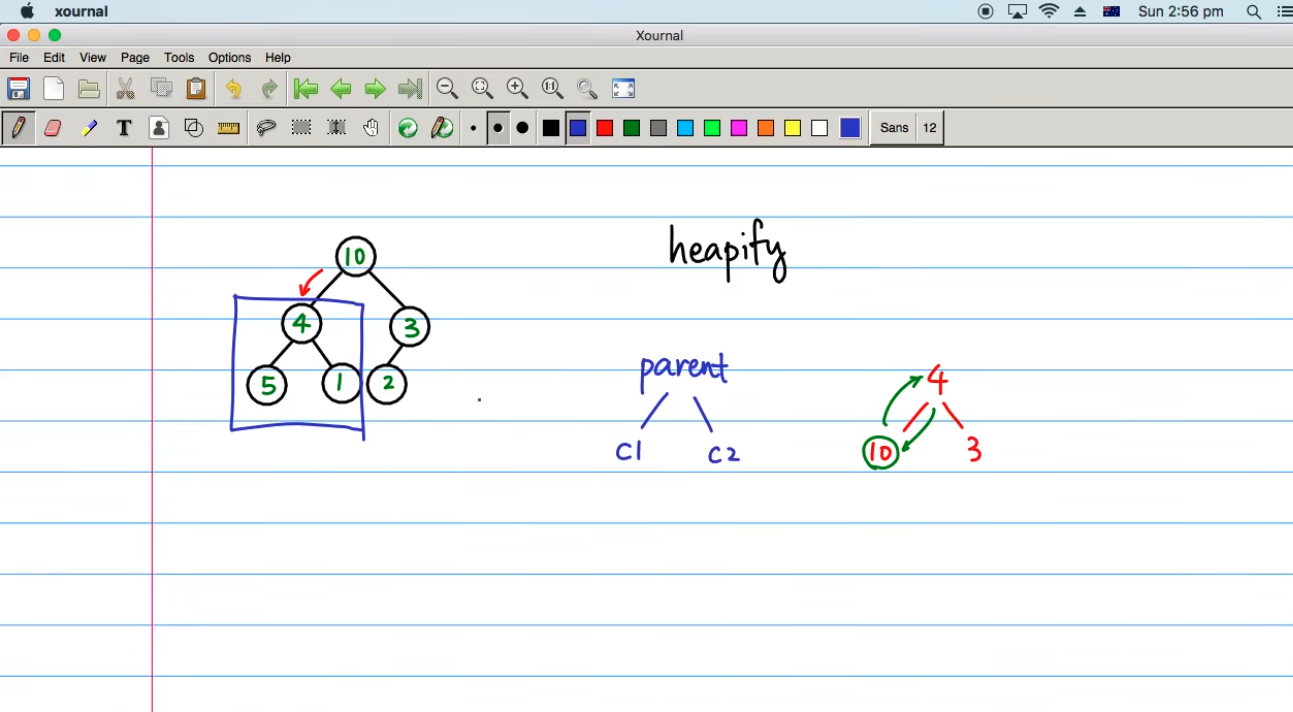 xournal
Sun 2:56 pm
Xournal
File Edit View Page Tools Options Help
Sans 12
heapify
10
4 3
5 1 2
parent
C1 C2
4
10 3